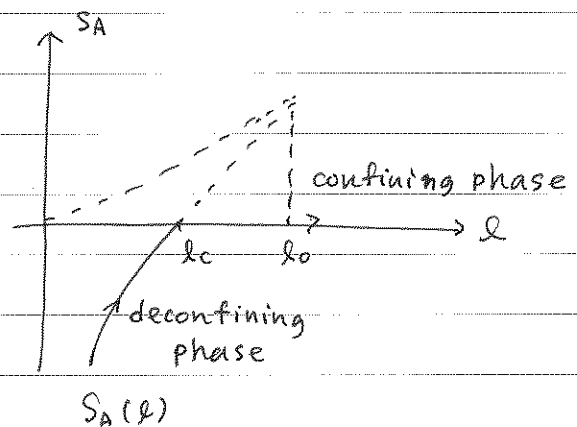 S_A
confining phase
l_c
l_0
l
deconfining
phase
S_A(l)